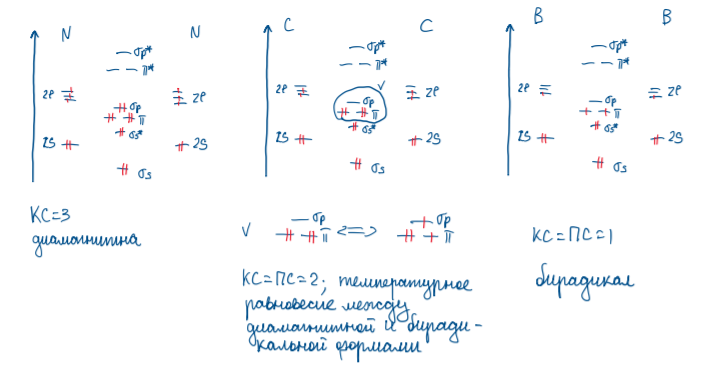 N N
σp*
π*
2P 2P
σp
π
σs*
2S 2S
σs
КС=3
диамагнитна
C C
σp*
π*
2P 2P
σp
π
σs*
2S 2S
σs
√ σp <=> σp
π π
КС=ПС=2; температурное
равновесие между
диамагнитной и биради-
кальной формами
B B
σp*
π*
2P 2P
σp
π
σs*
2S 2S
σs
КС=ПС=1
бирадикал